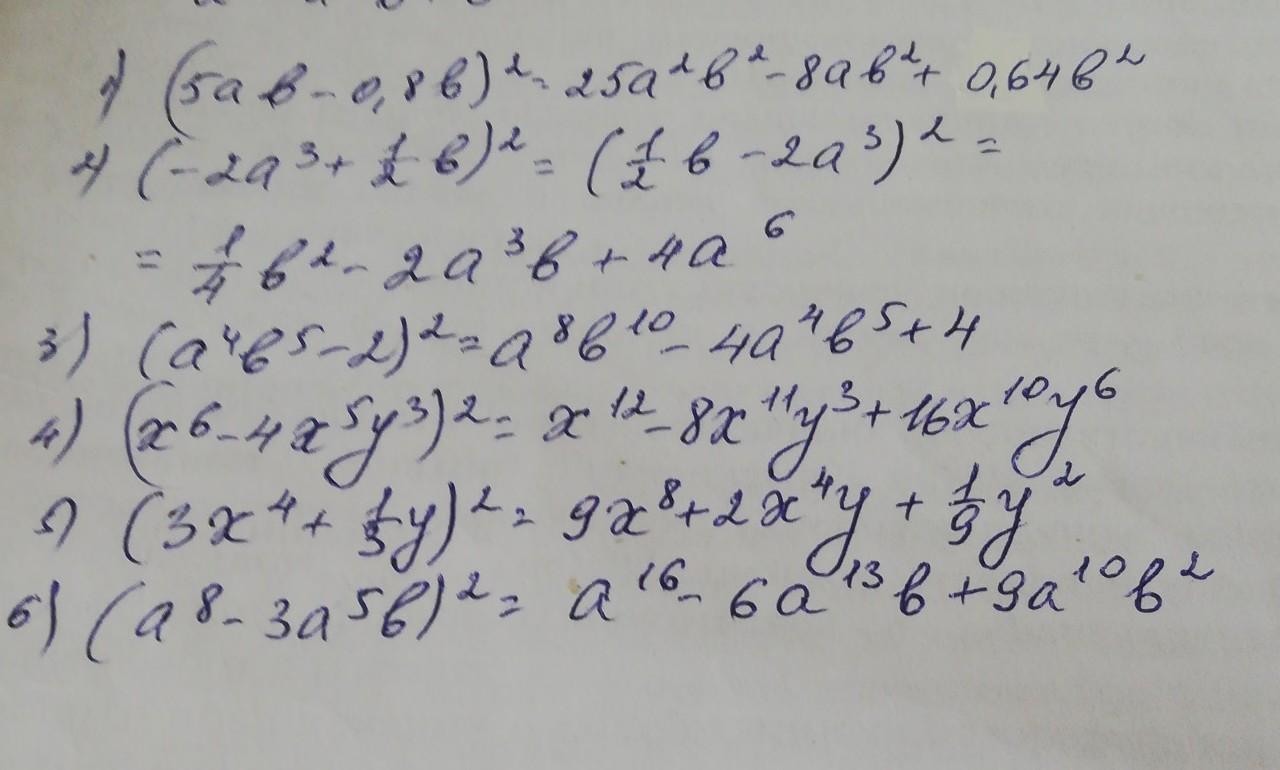 1) (5aв - 0,8в)² = 25a²в² - 8aв² + 0,64в²
2) (-2a³ + 1/2 в)² = (1/2 в - 2a³)² =
= 1/4 в² - 2a³в + 4a⁶
3) (a⁴в⁵ - 2)² = a⁸в¹⁰ - 4a⁴в⁵ + 4
4) (x⁶ - 4x⁵y³)² = x¹² - 8x¹¹y³ + 16x¹⁰y⁶
5) (3x⁴ + 1/3 y)² = 9x⁸ + 2x⁴y + 1/9 y²
6) (a⁸ - 3a⁵в)² = a¹⁶ - 6a¹³в + 9a¹⁰в²